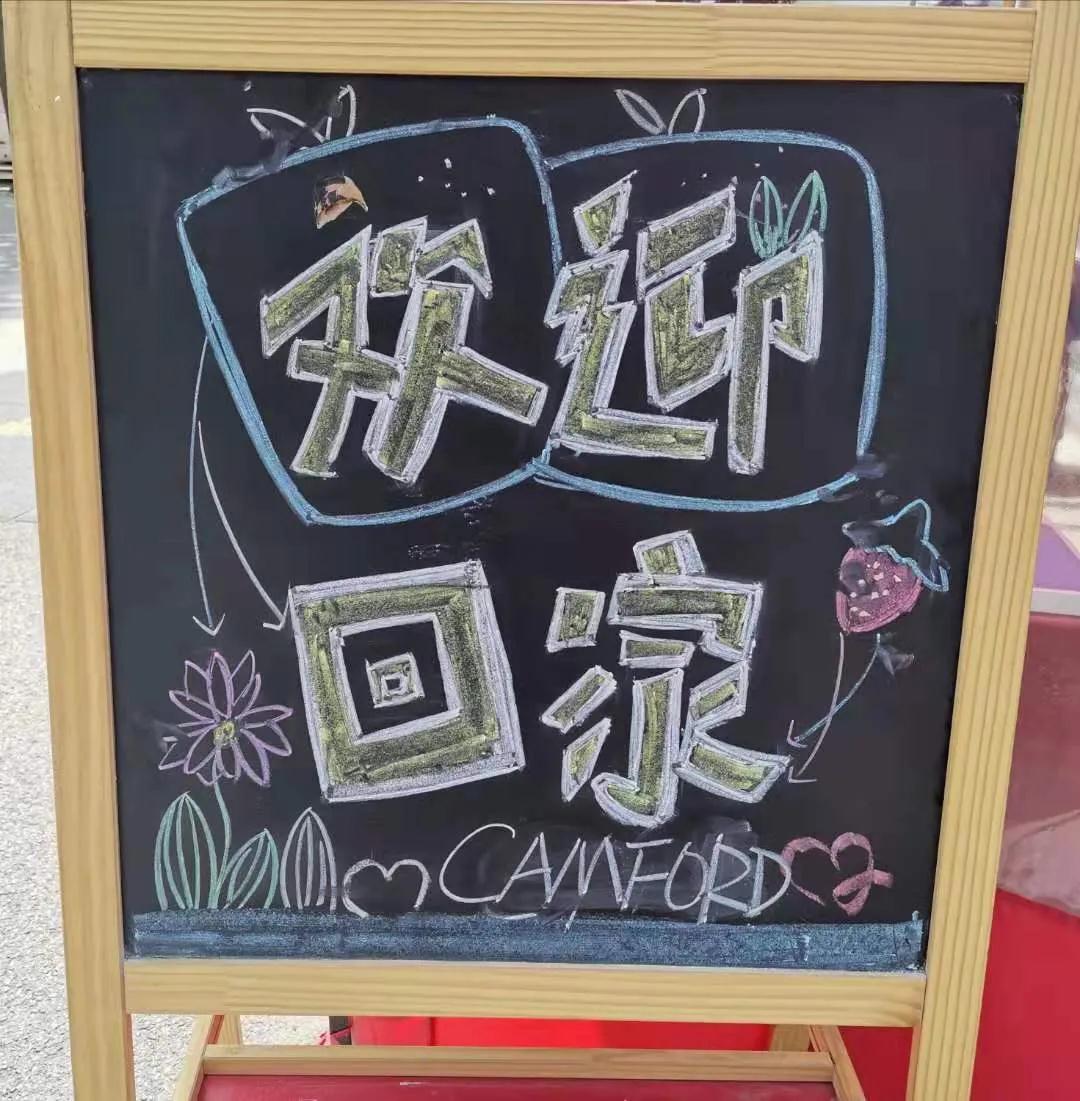 欢迎
回家
CAMFORD